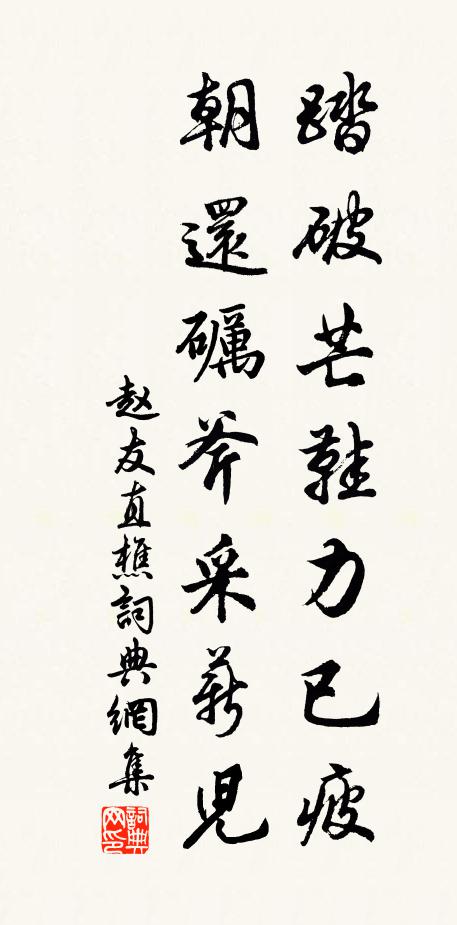 踏破芒鞋力已疲
朝還礪斧采薪兒
赵友直樵詞典網集
詞典网印